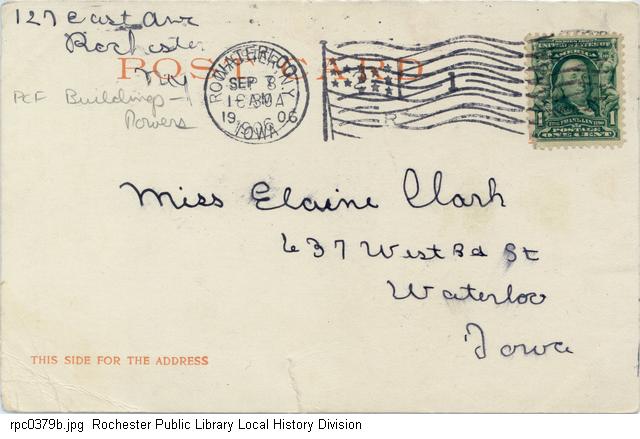 127 East Ave
Rochester
NY
POST CARD
PCF Buildings –
Powers
WATERLOO
SEP 8
1906
IOWA
1
R
UNITED STATES OF
AMERICA
1 POSTAGE 1
ONE CENT
Miss Elaine Clark
637 West 3d St
Waterloo
Iowa
THIS SIDE FOR THE ADDRESS
rpc0379b.jpg Rochester Public Library Local History Division